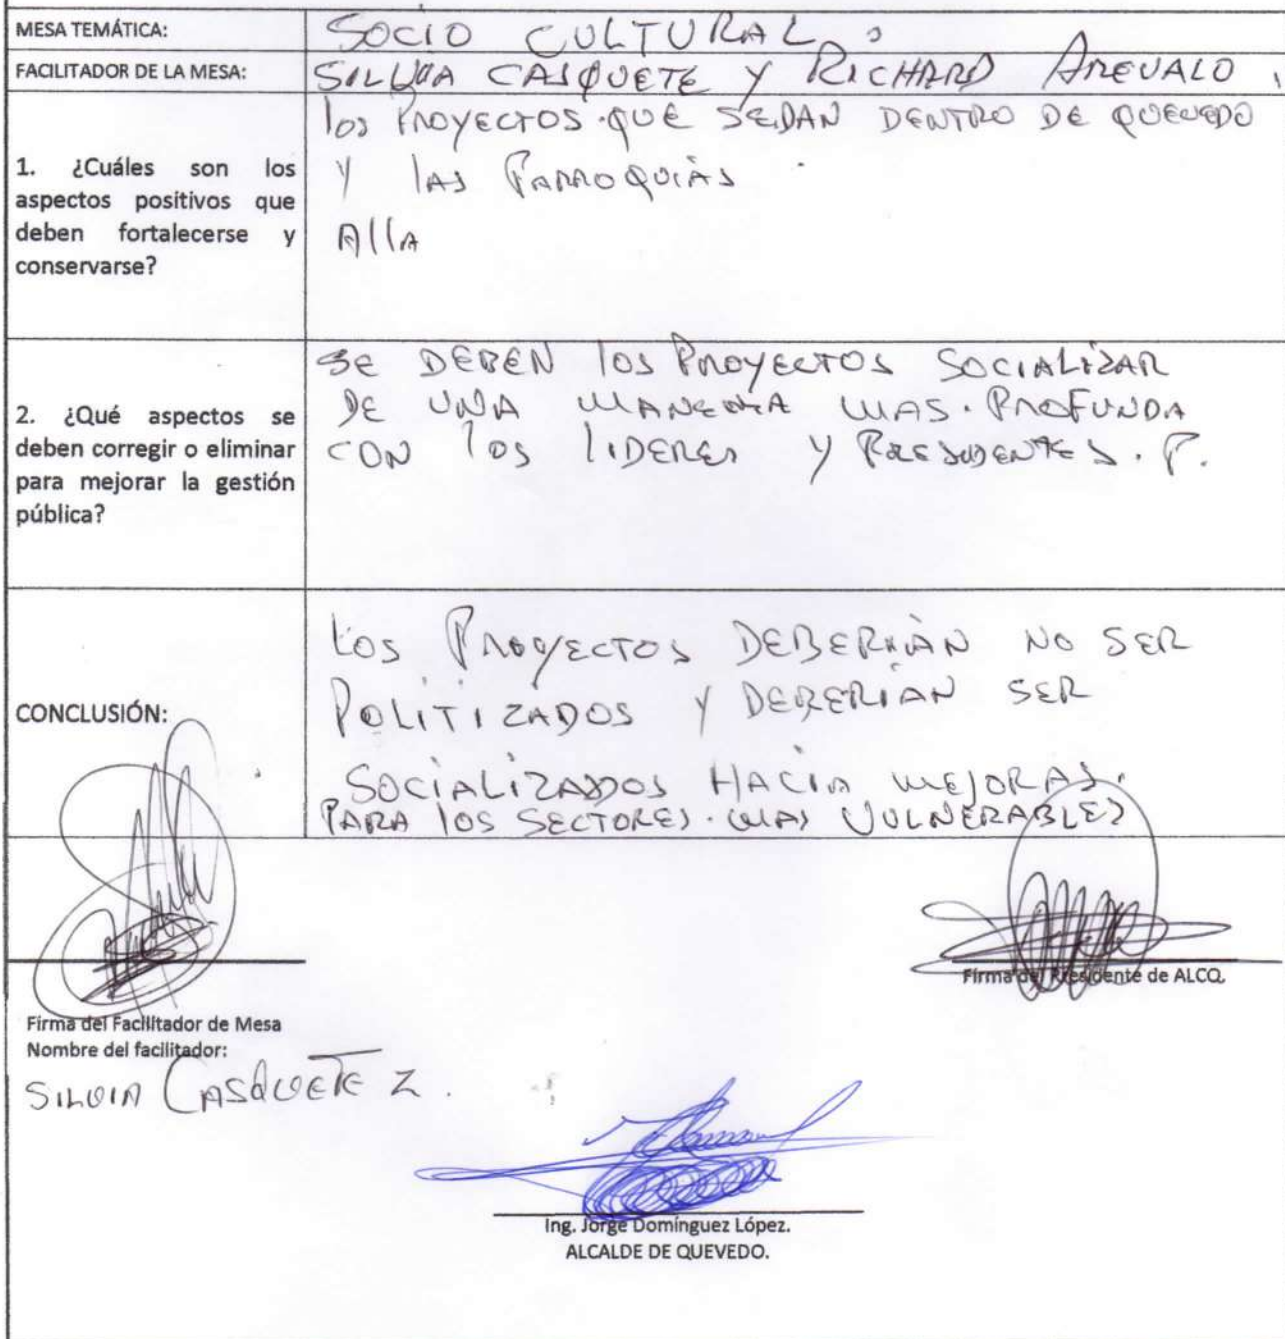 MESA TEMÁTICA: SOCIO CULTURAL.
FACILITADOR DE LA MESA: SILVIA CASQUETE Y RICHARD AREVALO.
1. ¿Cuáles son los
aspectos positivos que
deben fortalecerse y
conservarse?
los PROYECTOS QUE SE DAN DENTRO DE QUEVEDO
Y lAS PARROQUIAS
AllA
2. ¿Qué aspectos se
deben corregir o eliminar
para mejorar la gestión
pública?
SE DEBEN lOS PROYECTOS SOCIALIZAR
DE UNA MANERA MAS PROFUNDA
CON lOS lIDERES Y PRESIDENTES. P.
CONCLUSIÓN:
LOS PROYECTOS DEBERIAN NO SER
POLITIZADOS Y DEBERIAN SER
SOCIALIZADOS HACIA MEJORAS.
PARA lOS SECTORES MAS VULNERABLES
Firma del Presidente de ALCQ.
Firma del Facilitador de Mesa
Nombre del facilitador:
SILVIA CASQUETE Z.
Ing. Jorge Domínguez López.
ALCALDE DE QUEVEDO.